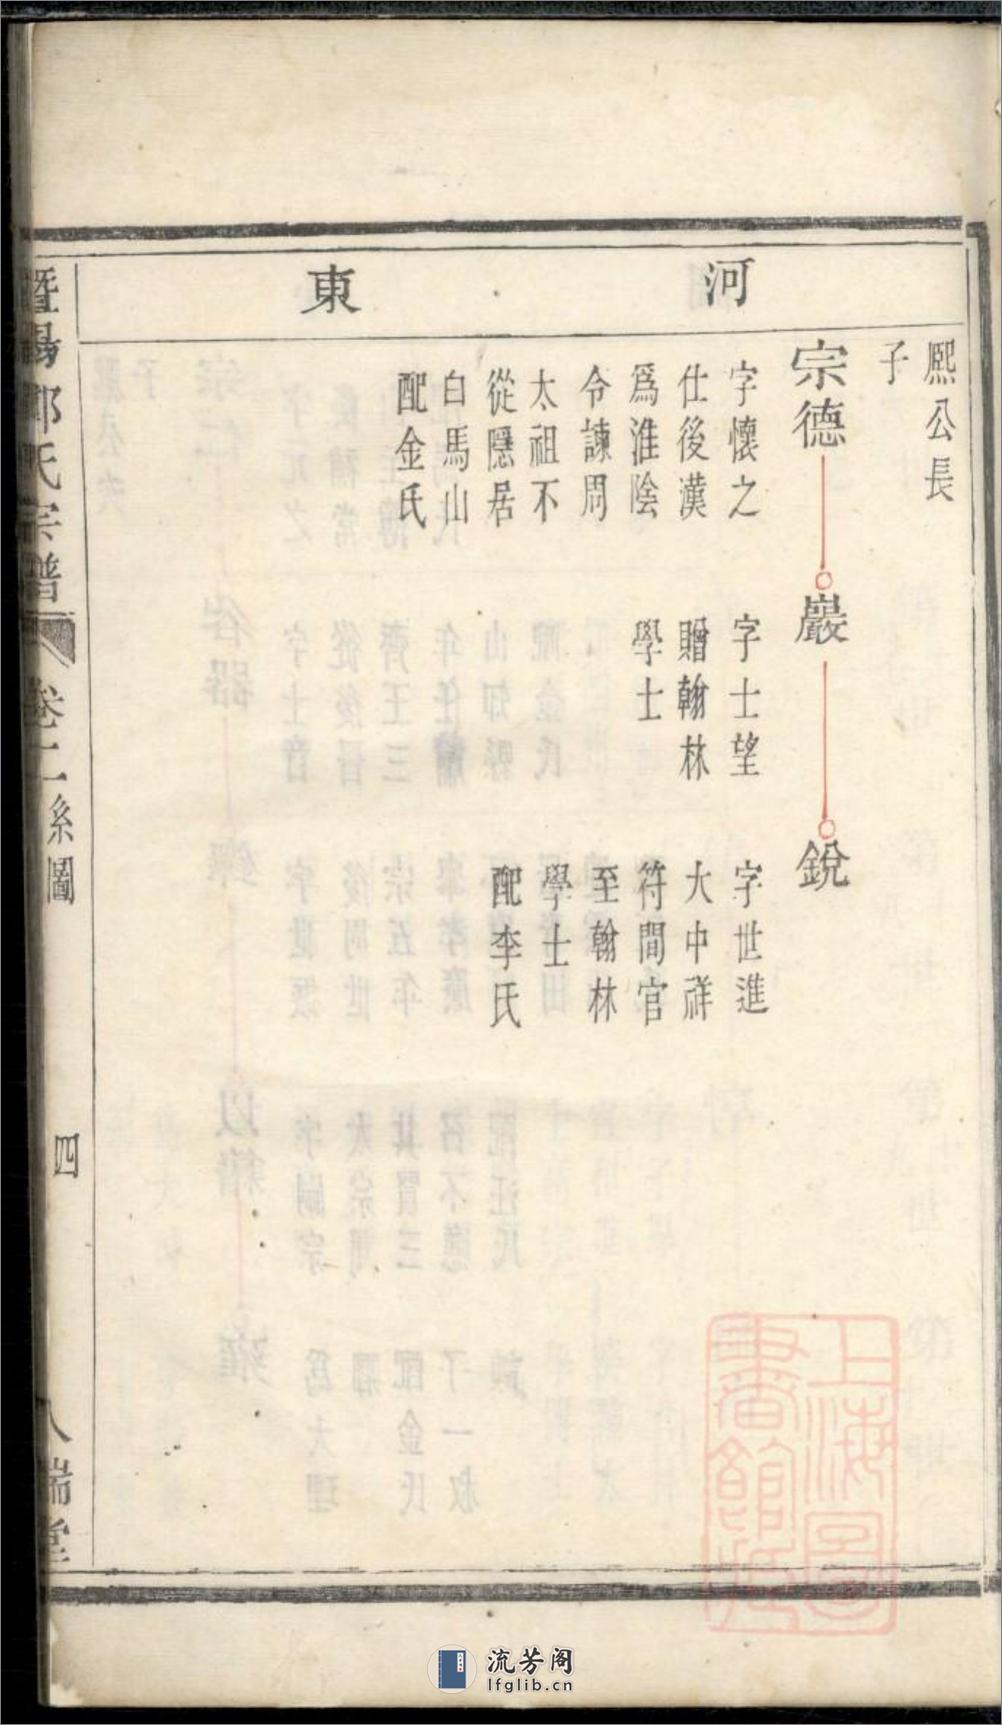 河東
熙公長
子
宗德
字懷之
仕後漢
爲淮陰
令諫周
太祖不
從隱居
白馬山
配金氏
巖
字士望
贈翰林
學士
銳
字世進
大中祥
符間官
至翰林
學士
配李氏
暨陽郭氏宗譜
卷二
系圖
四
八瑞堂
上海圖書館藏
流芳阁
lfglib.cn